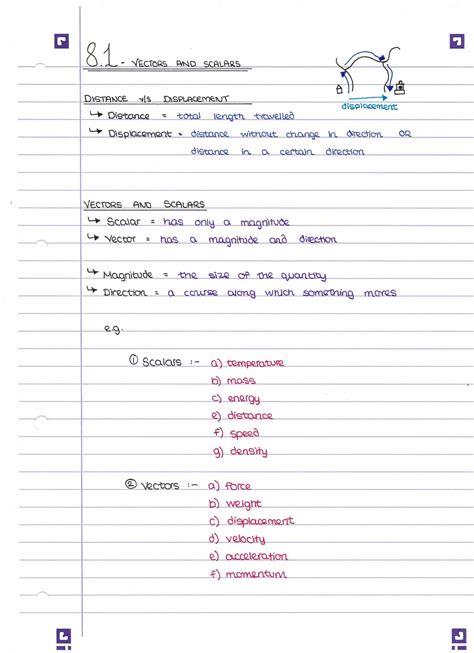 8.1 - VECTORS AND SCALARS
displacement
DISTANCE v/s DISPLACEMENT
↳ Distance = total length travelled
↳ Displacement = distance without change in direction OR
distance in a certain direction
VECTORS AND SCALARS
↳ Scalar = has only a magnitude
↳ Vector = has a magnitude and direction
↳ Magnitude = the size of the quantity
↳ Direction = a course along which something moves
e.g.
① Scalars :- a) temperature
b) mass
c) energy
e) distance
f) speed
g) density
② Vectors :- a) force
b) weight
c) displacement
d) velocity
e) acceleration
f) momentum